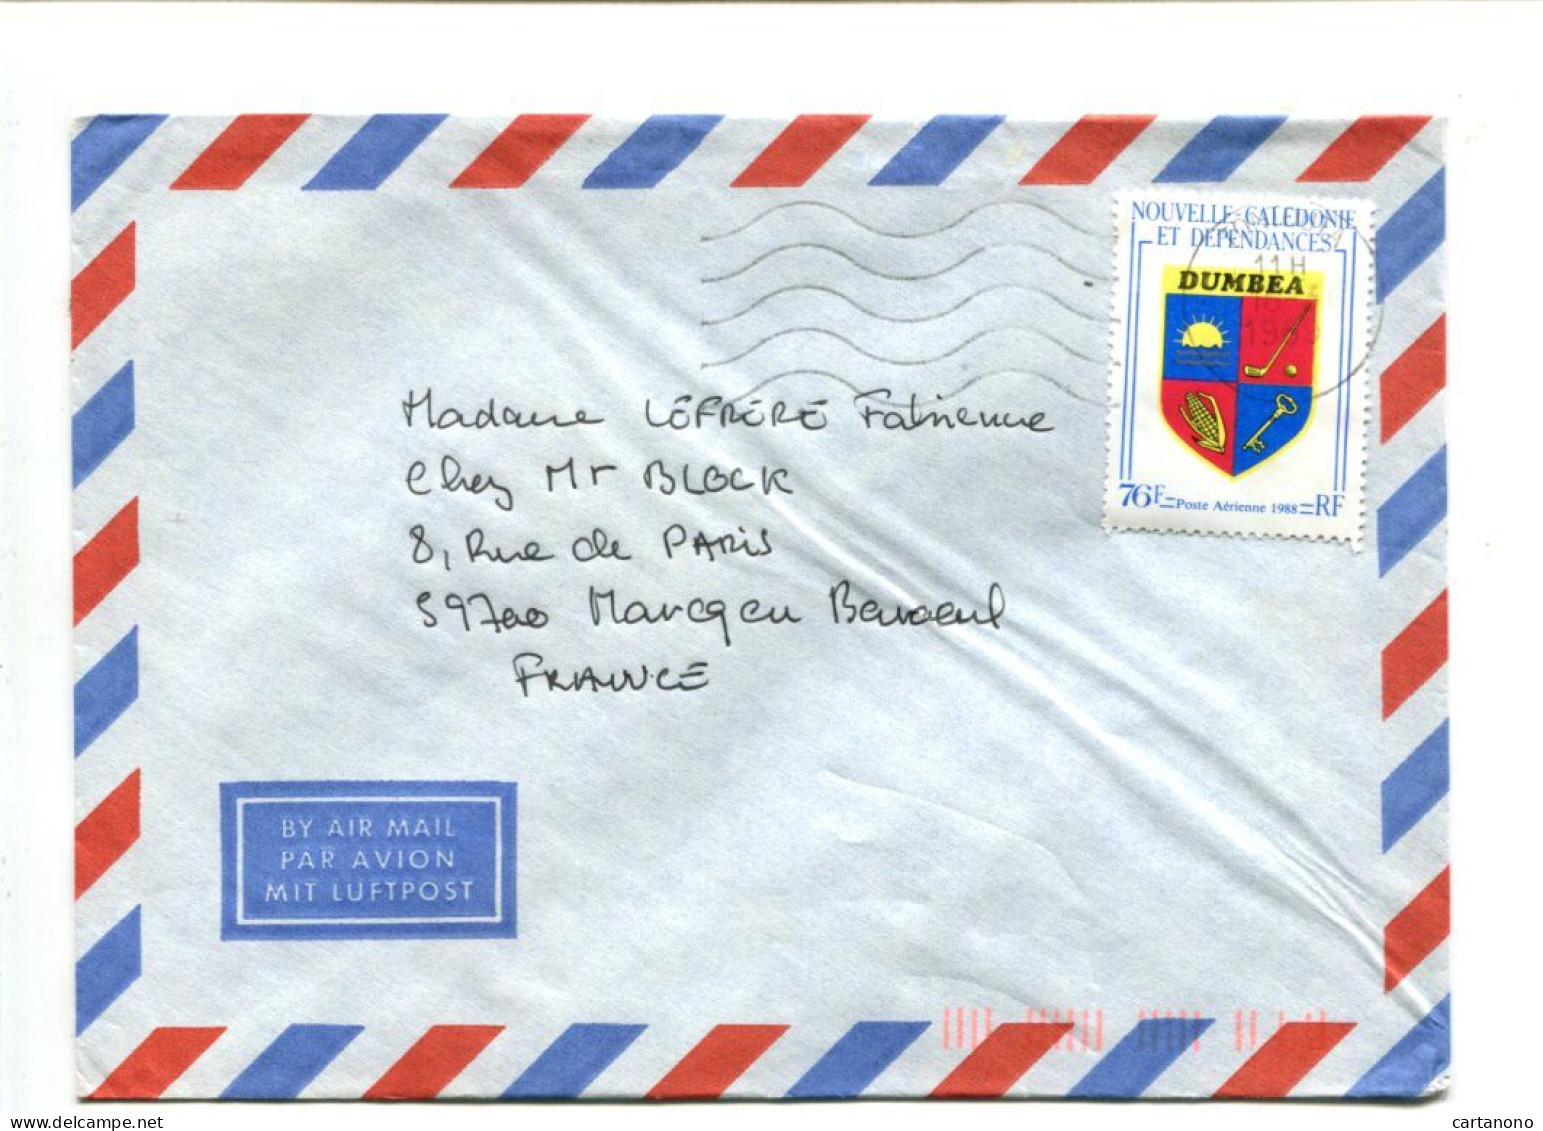 NOUVELLE-CALEDONIE
ET DEPENDANCES
11H
DUMBEA
76F = Poste Aérienne 1988 = RF
Madame LEFRERE Fabienne
Chez Mr BLOCK
8, Rue de PARIS
59700 Marcq en Baroeul
FRANCE
BY AIR MAIL
PAR AVION
MIT LUFTPOST
cartanono